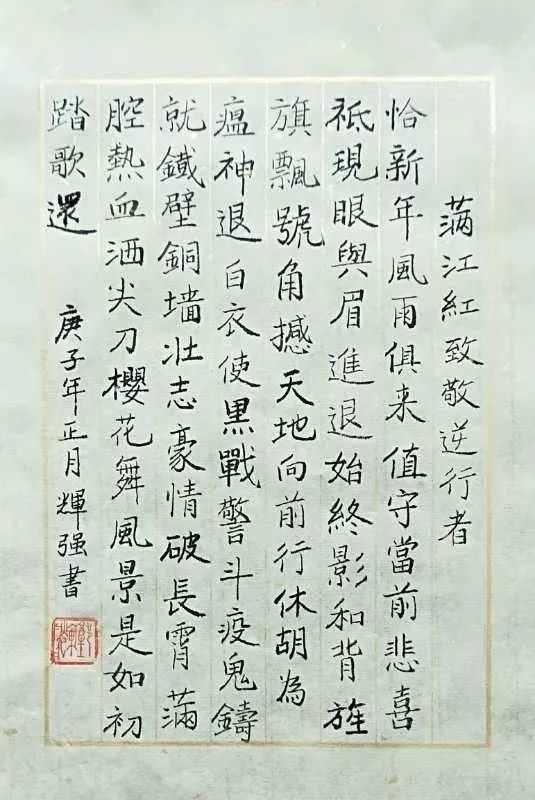 滿江紅致敬逆行者
恰新年風雨俱来值守當前悲喜
祗現眼與眉進退始終影和背旌
旗飄號角撼天地向前行休胡為
瘟神退白衣使黑戰警斗疫鬼鑄
就鐵壁銅墙壮志豪情破長霄滿
腔熱血洒尖刀櫻花舞風景是如初
踏歌還
庚子年正月輝强書